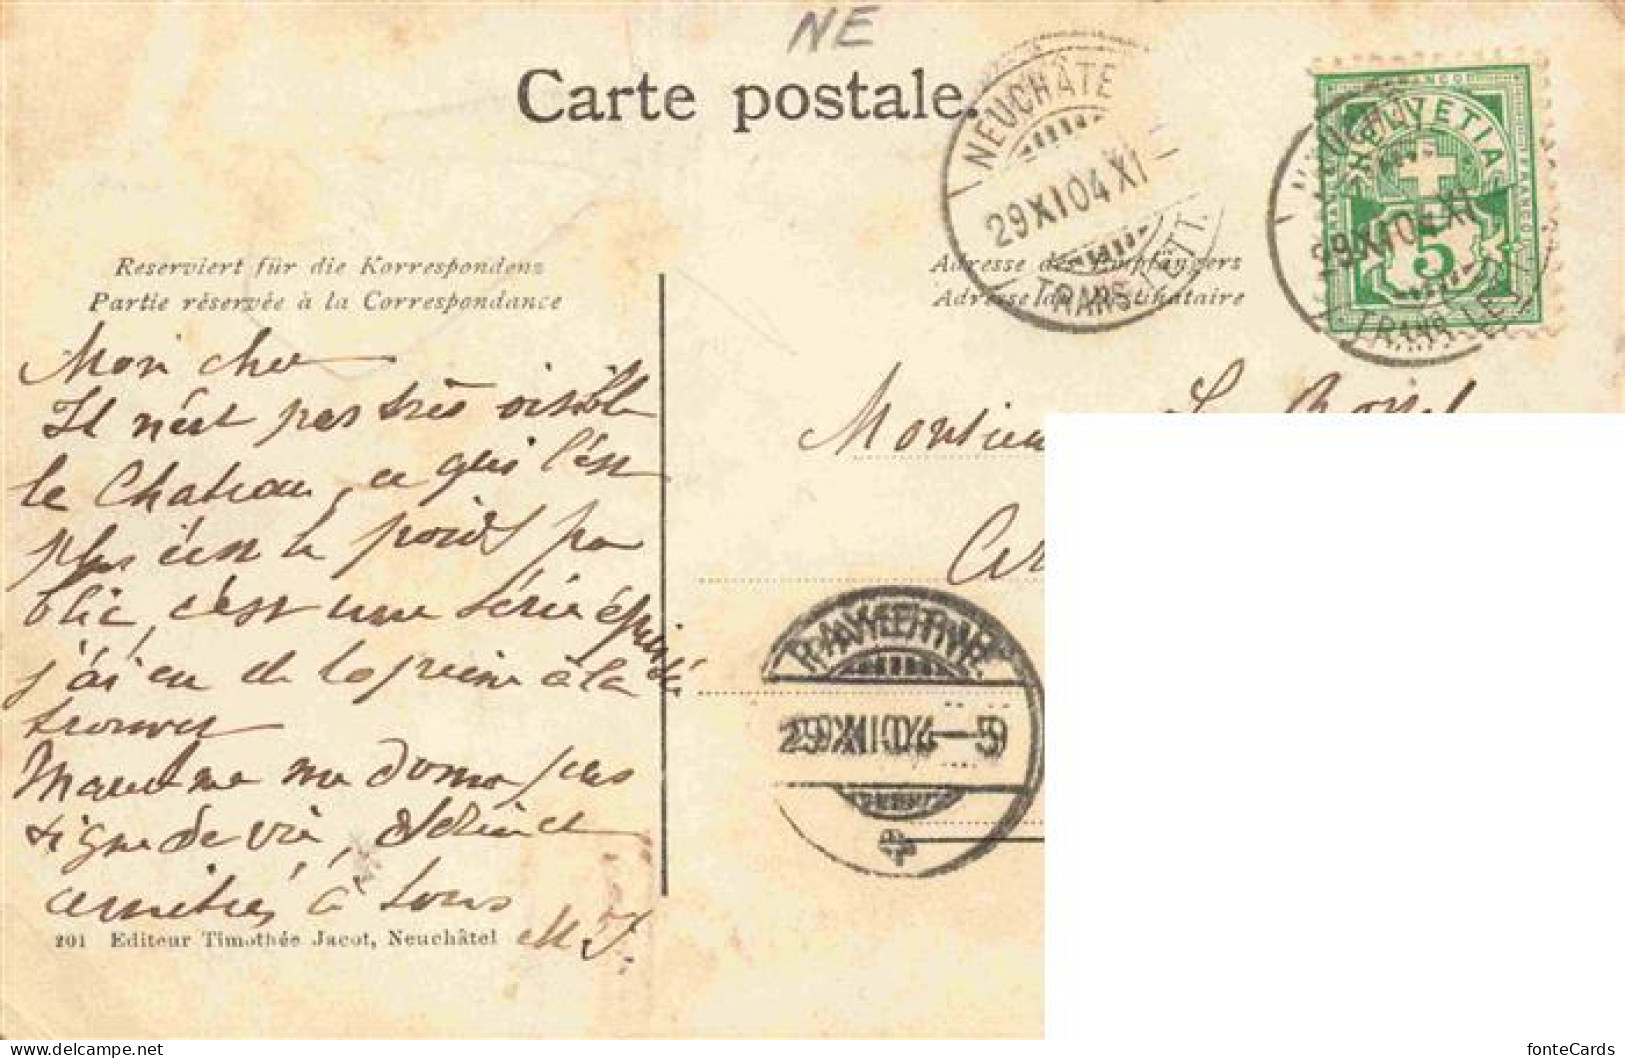 NE
Carte postale.
NEUCHÂTE
29 XI 04 XI
TRANSP. LETT.
NEUCH
29 XI 04 XI
TRANSP. LETT.
FRANCO
HELVETIA
FRANCO
5
Reserviert für die Korrespondenz
Partie réservée à la Correspondance
Adresse des Empfängers
Adresse du Destinataire
Mon cher
Il n'est pas très visible
le Château, ce qui l'est
plus c'est le poids pu
blic, c'est une série épuisée
j'ai eu de la peine à la
trouver
Monsieur
PAYERNE
29 XI 04 — 9
me donne pas
signe de vie,
amitiés à tous
M J.
201 Editeur Timothée Jacot, Neuchâtel
fonteCards